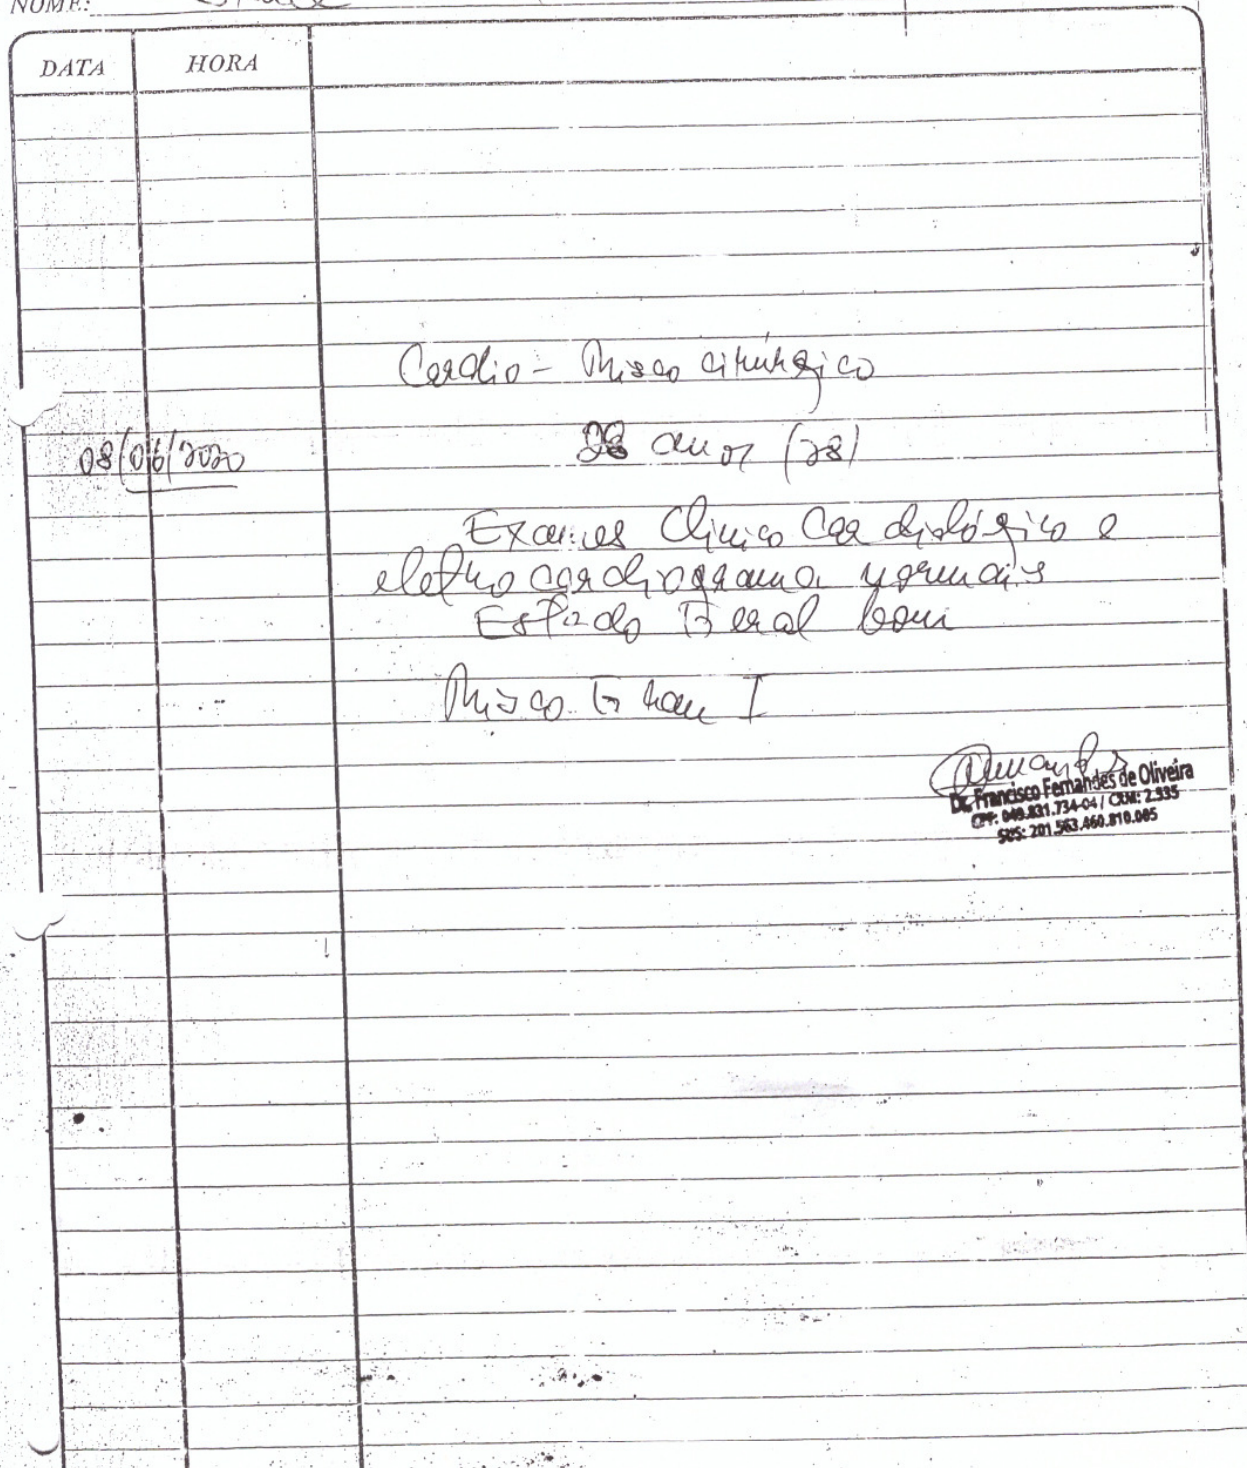 NOME:
DATA HORA
Cardio - Risco cirúrgico
08/06/2020 28 anos (28)
Exames Clinico Cardiológico e
eletrocardiograma normais
Estado Geral bom
Risco Grau I
Dr. Francisco Fernandes de Oliveira
CPF: 049.831.734-04 / CRM: 2.935
SUS: 201.563.460.810.005